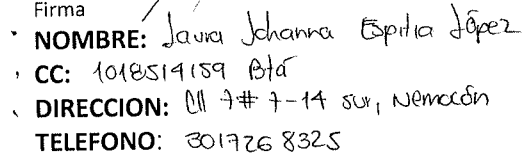 Firma
NOMBRE: Laura Johanna Espitia López
CC: 1018514159 Btá
DIRECCION: Cll 7 # 7-14 sur, Nemocón
TELEFONO: 3017268325